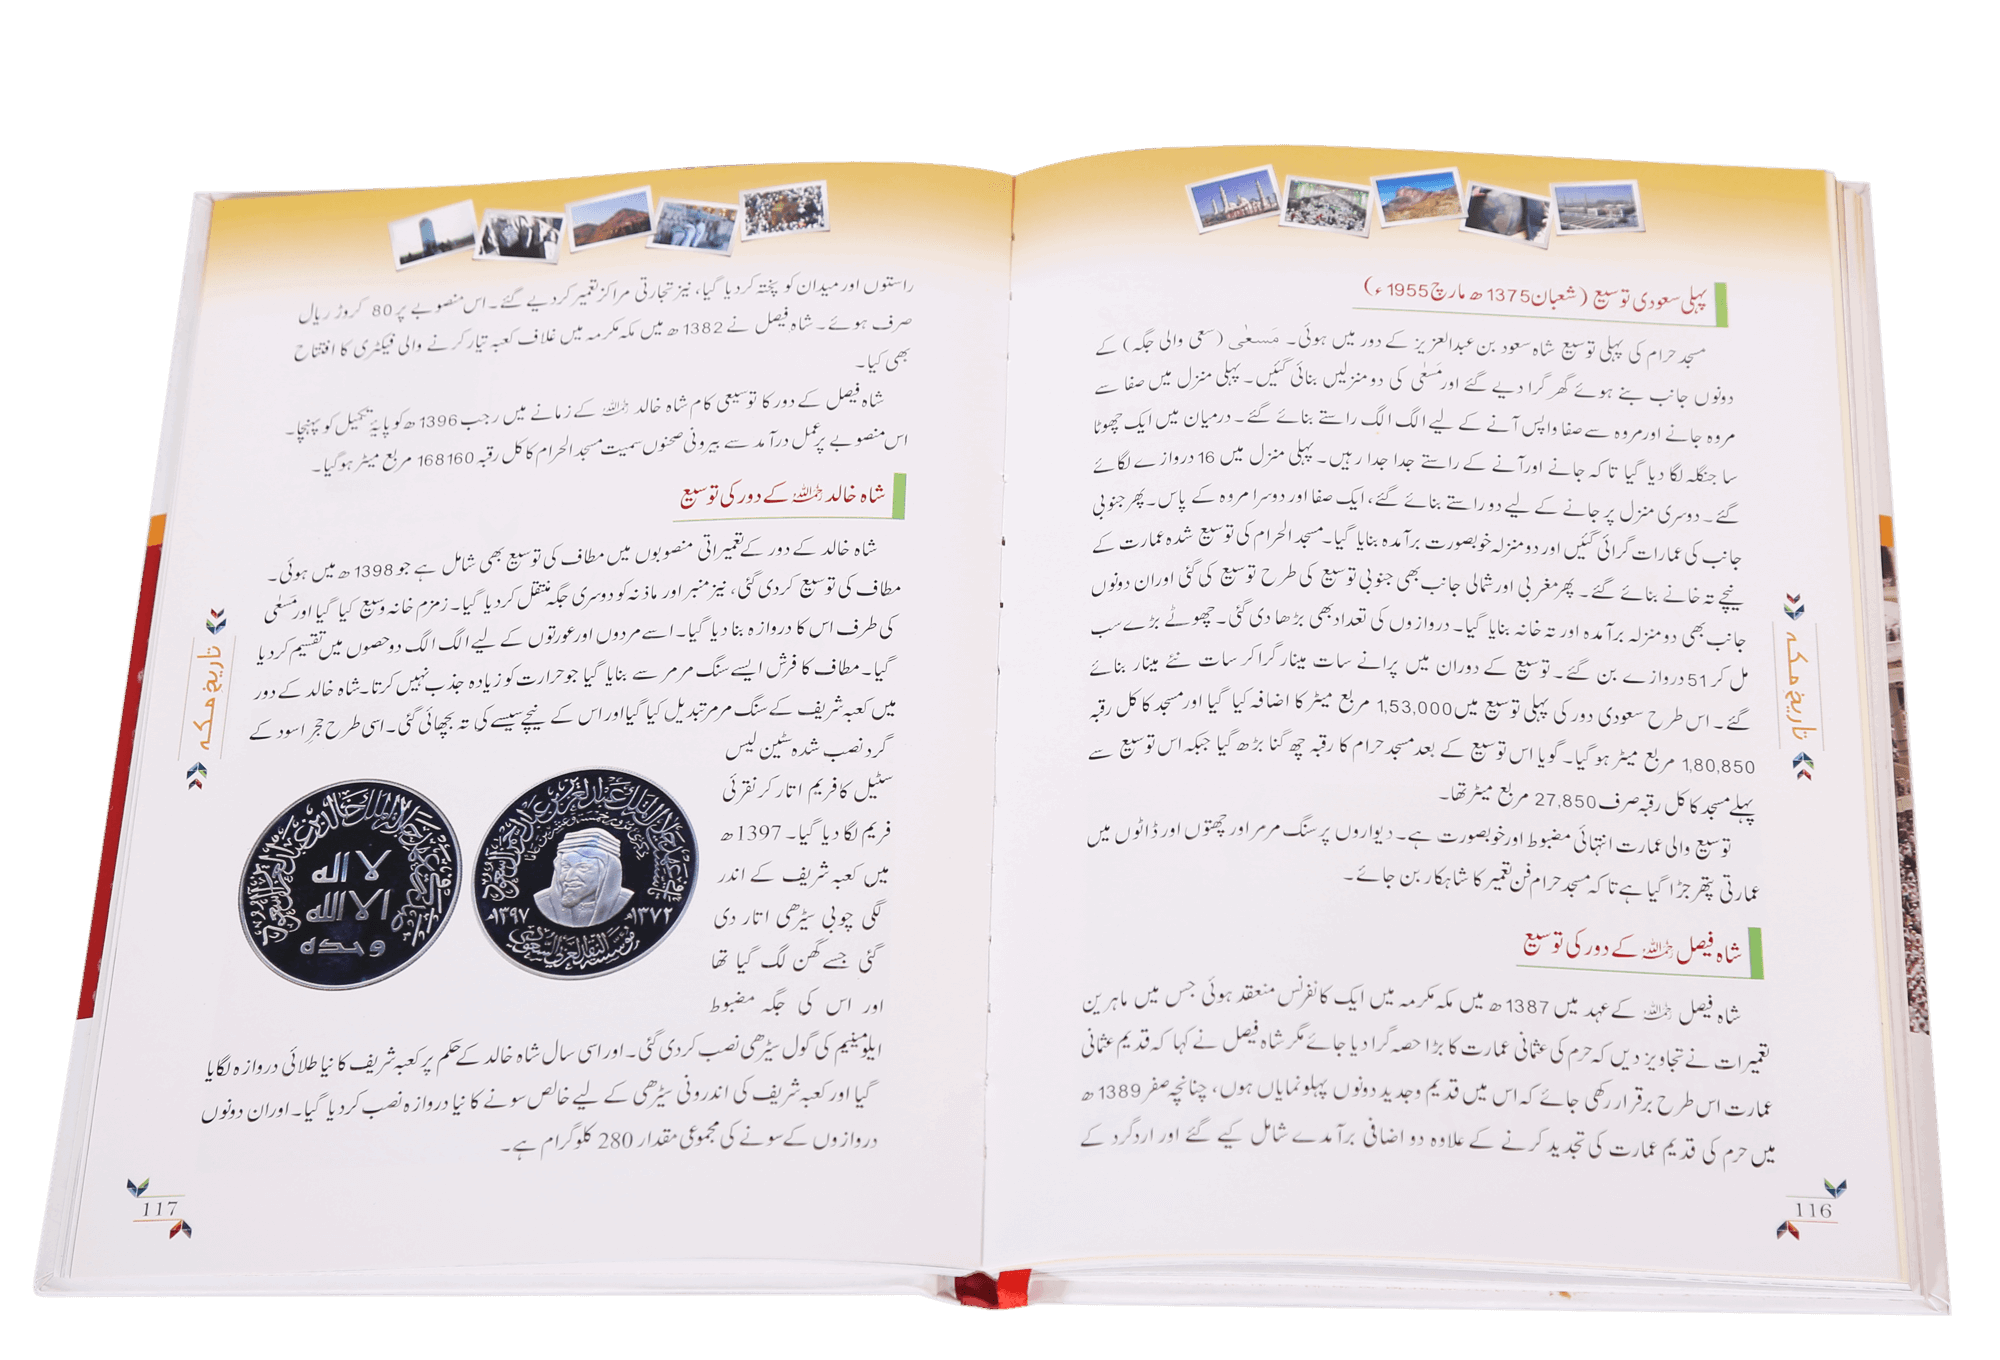 پہلی سعودی توسیع (شعبان 1375ھ مارچ 1955ء)
مسجد حرام کی پہلی توسیع شاہ سعود بن عبدالعزیز کے دور میں ہوئی۔ مَسعٰی (سعی والی جگہ) کے
دونوں جانب بنے ہوئے گھر گرا دیے گئے اور مَسعٰی کی دو منزلیں بنائی گئیں۔ پہلی منزل میں صفا سے
مروہ جانے اور مروہ سے صفا واپس آنے کے لیے الگ الگ راستے بنائے گئے۔ درمیان میں ایک چھوٹا
سا جنگلہ لگا دیا گیا تاکہ جانے اور آنے کے راستے جدا جدا رہیں۔ پہلی منزل میں 16 دروازے لگائے
گئے۔ دوسری منزل پر جانے کے لیے دو راستے بنائے گئے، ایک صفا اور دوسرا مروہ کے پاس۔ پھر جنوبی
جانب کی عمارات گرائی گئیں اور دو منزلہ خوبصورت برآمدہ بنایا گیا۔ مسجد الحرام کی توسیع شدہ عمارت کے
نیچے تہ خانے بنائے گئے۔ پھر مغربی اور شمالی جانب بھی جنوبی توسیع کی طرح توسیع کی گئی اور ان دونوں
جانب بھی دو منزلہ برآمدہ اور تہ خانہ بنایا گیا۔ دروازوں کی تعداد بھی بڑھا دی گئی۔ چھوٹے بڑے سب
مل کر 51 دروازے بن گئے۔ توسیع کے دوران میں پرانے سات مینار گرا کر سات نئے مینار بنائے
گئے۔ اس طرح سعودی دور کی پہلی توسیع میں 1,53,000 مربع میٹر کا اضافہ کیا گیا اور مسجد کا کل رقبہ
1,80,850 مربع میٹر ہو گیا۔ گویا اس توسیع کے بعد مسجد حرام کا رقبہ چھ گنا بڑھ گیا جبکہ اس توسیع سے
پہلے مسجد کا کل رقبہ صرف 27,850 مربع میٹر تھا۔
توسیع والی عمارت انتہائی مضبوط اور خوبصورت ہے۔ دیواروں پر سنگ مرمر اور چھتوں اور ڈاٹوں میں
عمارتی پتھر جڑا گیا ہے تاکہ مسجد حرام فن تعمیر کا شاہکار بن جائے۔
شاہ فیصل رحمہ اللہ کے دور کی توسیع
شاہ فیصل رحمہ اللہ کے عہد میں 1387ھ میں مکہ مکرمہ میں ایک کانفرنس منعقد ہوئی جس میں ماہرین
تعمیرات نے تجاویز دیں کہ حرم کی عثمانی عمارت کا بڑا حصہ گرا دیا جائے مگر شاہ فیصل نے کہا کہ قدیم عثمانی
عمارت اس طرح برقرار رکھی جائے کہ اس میں قدیم و جدید دونوں پہلو نمایاں ہوں، چنانچہ صفر 1389ھ
میں حرم کی قدیم عمارت کی تجدید کرنے کے علاوہ دو اضافی برآمدے شامل کیے گئے اور اردگرد کے
تاریخ مکہ
116
راستوں اور میدان کو پختہ کر دیا گیا، نیز تجارتی مراکز تعمیر کر دیے گئے۔ اس منصوبے پر 80 کروڑ ریال
صرف ہوئے۔ شاہ فیصل نے 1382ھ میں مکہ مکرمہ میں غلاف کعبہ تیار کرنے والی فیکٹری کا افتتاح
بھی کیا۔
شاہ فیصل کے دور کا توسیعی کام شاہ خالد رحمہ اللہ کے زمانے میں رجب 1396ھ کو پایۂ تکمیل کو پہنچا۔
اس منصوبے پر عمل درآمد سے بیرونی صحنوں سمیت مسجد الحرام کا کل رقبہ 168160 مربع میٹر ہو گیا۔
شاہ خالد رحمہ اللہ کے دور کی توسیع
شاہ خالد کے دور کے تعمیراتی منصوبوں میں مطاف کی توسیع بھی شامل ہے جو 1398ھ میں ہوئی۔
مطاف کی توسیع کر دی گئی، نیز منبر اور ماذنہ کو دوسری جگہ منتقل کر دیا گیا۔ زمزم خانہ وسیع کیا گیا اور مَسعٰی
کی طرف اس کا دروازہ بنا دیا گیا۔ اسے مردوں اور عورتوں کے لیے الگ الگ دو حصوں میں تقسیم کر دیا
گیا۔ مطاف کا فرش ایسے سنگ مرمر سے بنایا گیا جو حرارت کو زیادہ جذب نہیں کرتا۔ شاہ خالد کے دور
میں کعبہ شریف کے سنگ مرمر تبدیل کیا گیا اور اس کے نیچے سیسے کی تہ بچھائی گئی۔ اسی طرح حجر اسود کے
گرد نصب شدہ سٹین لیس
سٹیل کا فریم اتار کر نقرئی
فریم لگا دیا گیا۔ 1397ھ
میں کعبہ شریف کے اندر
لگی چوبی سیڑھی اتار دی
گئی جسے گھن لگ گیا تھا
اور اس کی جگہ مضبوط
ایلومینیم کی گول سیڑھی نصب کر دی گئی۔ اور اسی سال شاہ خالد کے حکم پر کعبہ شریف کا نیا طلائی دروازہ لگایا
گیا اور کعبہ شریف کی اندرونی سیڑھی کے لیے خالص سونے کا نیا دروازہ نصب کر دیا گیا۔ اور ان دونوں
دروازوں کے سونے کی مجموعی مقدار 280 کلوگرام ہے۔
١٣٧٢هـ
١٣٩٧م
مؤسسة النقد العربي السعودي
لا اله
الا الله
وحده
تاریخ مکہ
117